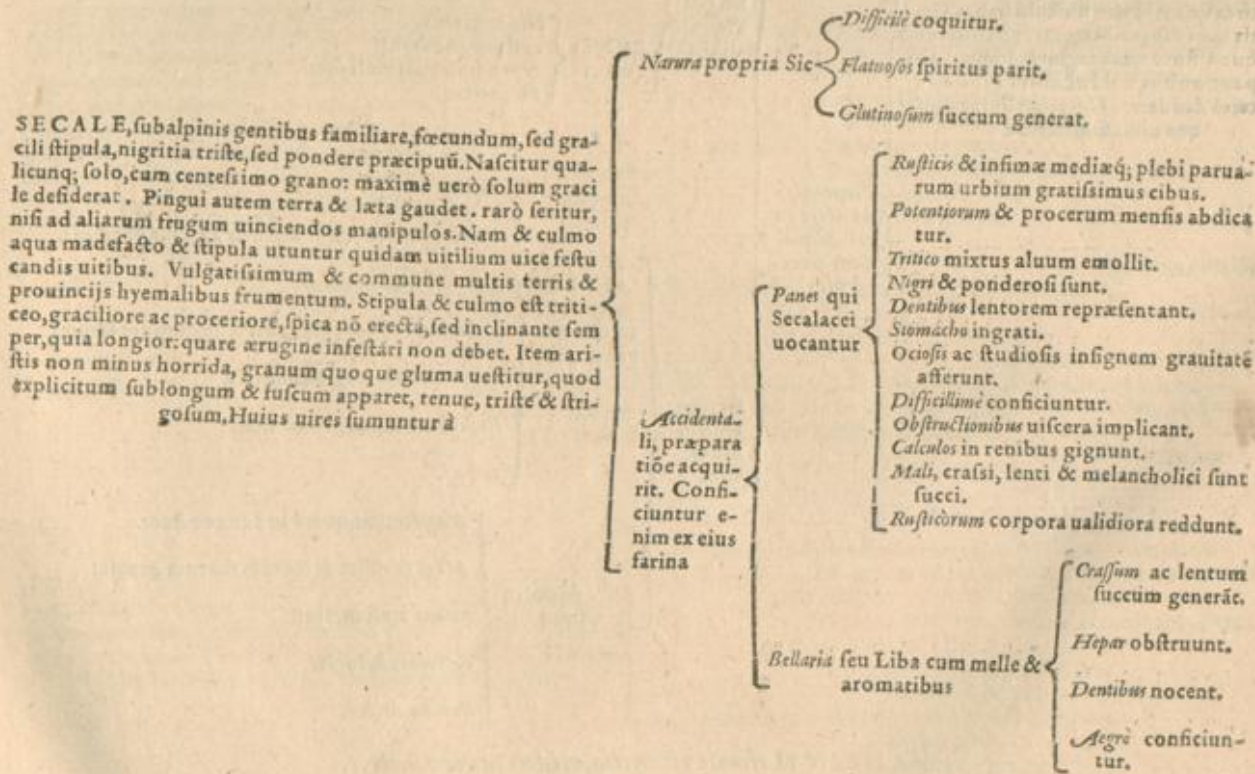 SECALE, ſubalpinis gentibus familiare, fœcundum, ſed gra-
cili ſtipula, nigritia triſte, ſed pondere præcipuũ. Naſcitur qua-
licunq; ſolo, cum centeſsimo grano: maximè uerò ſolum graci
le deſiderat. Pingui autem terra & læta gaudet. rarò ſeritur,
niſi ad aliarum frugum uinciendos manipulos. Nam & culmo
aqua madefacto & ſtipula utuntur quidam uitilium uice feſtu
candis uitibus. Vulgatiſsimum & commune multis terris &
prouincijs hyemalibus frumentum. Stipula & culmo eſt triti-
ceo, graciliore ac proceriore, ſpica nõ erecta, ſed inclinante ſem
per, quia longior: quare ærugine infeſtári non debet. Item ari-
ſtis non minus horrida, granum quoque gluma ueſtitur, quod
explicitum ſublongum & fuſcum apparet, tenue, triſte & ſtri-
goſum. Huius uires ſumuntur à
Narura propria Sic
Difficilè coquitur.
Flatuoſos ſpiritus parit.
Glutinoſum ſuccum generat.
Accidenta-
li, præpara
tiõe acqui-
rit. Confi-
ciuntur e-
nim ex eius
farina
Panes qui
Secalacei
uocantur
Ruſticis & infimæ mediæq́; plebi parua-
rum urbium gratiſsimus cibus.
Potentiorum & procerum menſis abdica
tur.
Tritico mixtus aluum emollit.
Nigri & ponderoſi ſunt.
Dentibus lentorem repræſentant.
Stomacho ingrati.
Ocioſis ac ſtudioſis inſignem grauitatẽ
afferunt.
Difficillimè conficiuntur.
Obſtructionibus uiſcera implicant.
Calculos in renibus gignunt.
Mali, craſsi, lenti & melancholici ſunt
ſucci.
Ruſticorum corpora ualidiora reddunt.
Bellaria ſeu Liba cum melle &
aromatibus
Craſſum ac lentum
ſuccum generãt.
Hepar obſtruunt.
Dentibus nocent.
Aegrè conficiun-
tur.